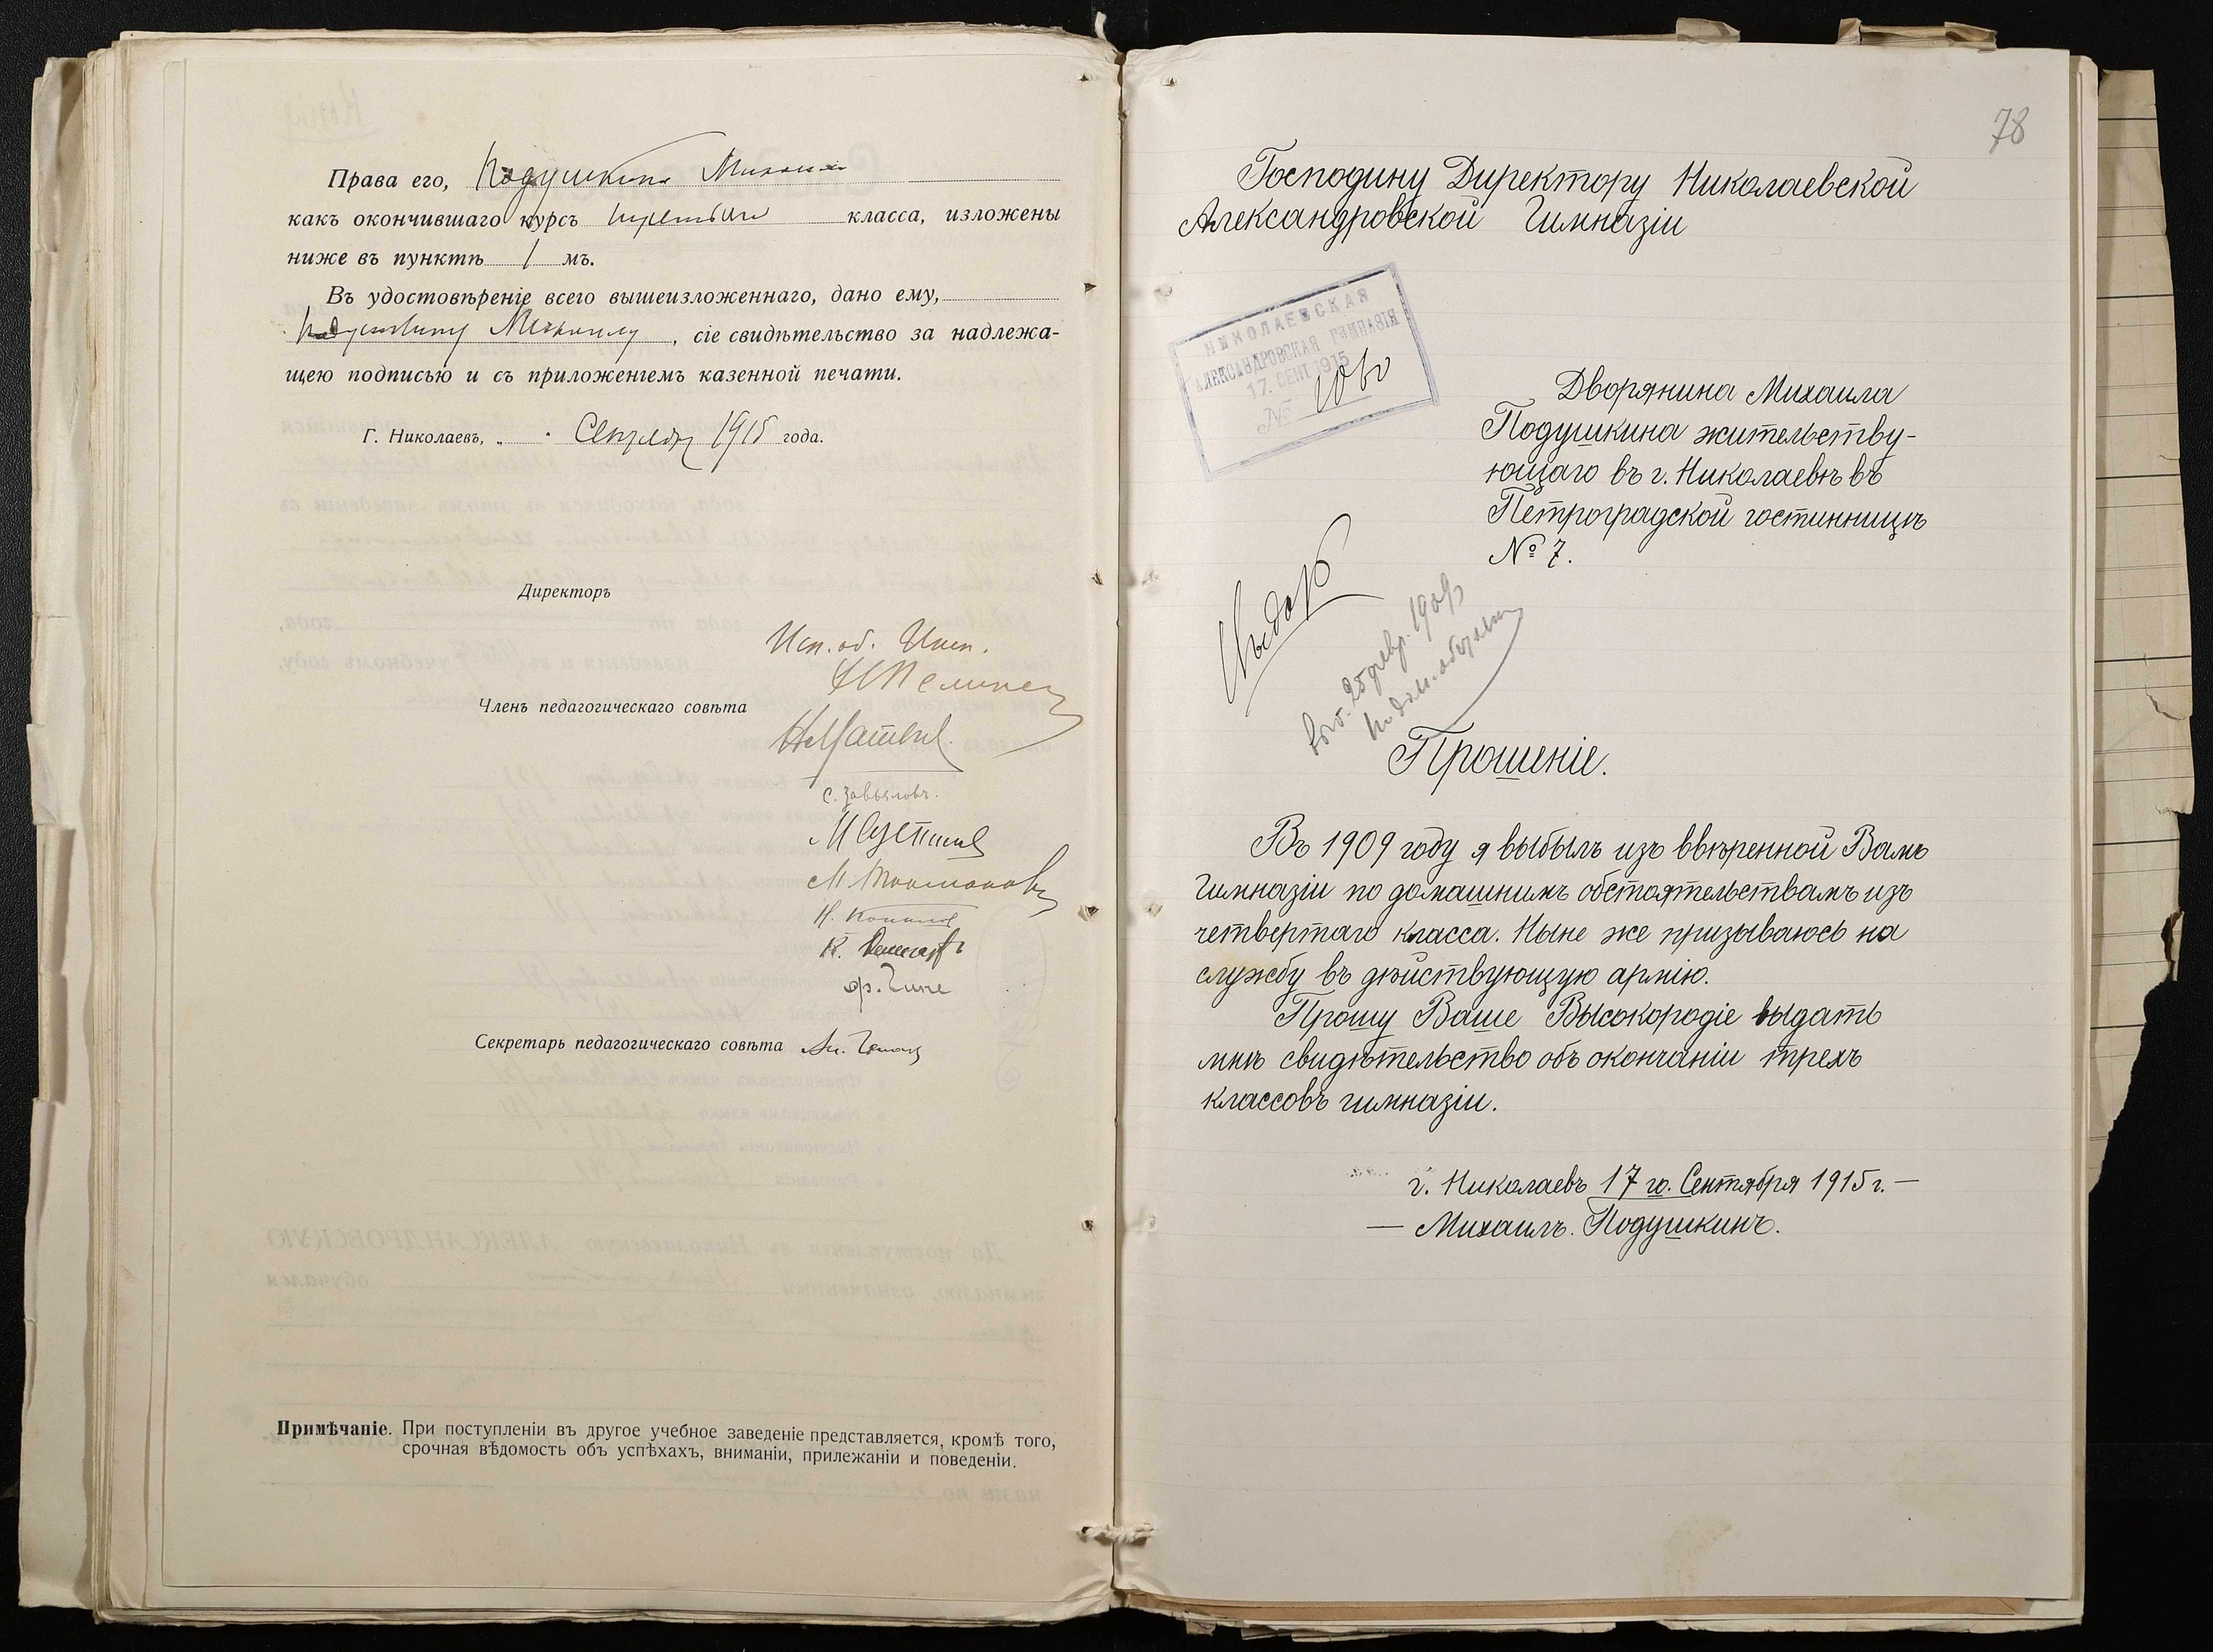 Права его, Подушкина Михаила
какъ окончившаго курсъ третьяго класса, изложены
ниже въ пунктѣ 1 мъ.
Въ удостовѣреніе всего вышеизложеннаго, дано ему,
Подушкину Михаилу, сіе свидѣтельство за надлежа-
щею подписью и съ приложеніемъ казенной печати.
Г. Николаевъ, „ Сентября 1915 года.
Директоръ
Исп. об. Инсп.
Членъ педагогическаго совѣта
С. Завьяловъ.
Секретарь педагогическаго совѣта
Примѣчаніе. При поступленіи въ другое учебное заведеніе представляется, кромѣ того,
срочная вѣдомость объ успѣхахъ, вниманіи, прилежаніи и поведеніи.
78
Господину Директору Николаевской
Александровской Гимназіи
НИКОЛАЕВСКАЯ
АЛЕКСАНДРОВСКАЯ ГИМНАЗІЯ
17. СЕНТ 1915
№ 1060
Дворянина Михаила
Подушкина жительству-
ющаго въ г. Николаевѣ въ
Петроградской гостинницѣ
№ 7.
выб. 25 февр. 1909
по дом. обст.
Прошеніе.
Въ 1909 году я выбылъ изъ ввѣренной Вамъ
Гимназіи по домашнимъ обстоятельствамъ изъ
четвертаго класса. Ныне же призываюсь на
службу въ дѣйствующую армію.
Прошу Ваше Высокородіе выдать
мнѣ свидѣтельство объ окончаніи трехъ
классовъ гимназіи.
г. Николаевъ 17 го. Сентября 1915 г. —
— Михаилъ. Подушкинъ.